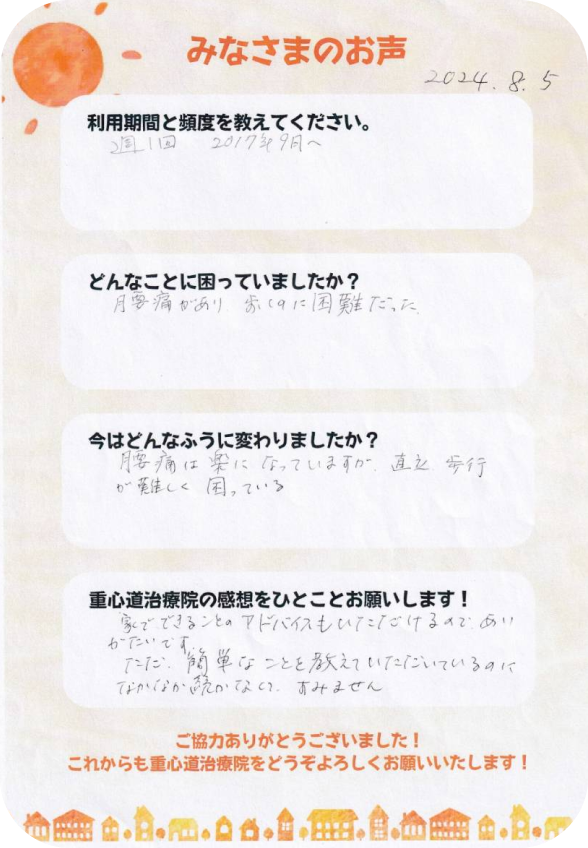 みなさまのお声
2024.8.5
利用期間と頻度を教えてください。
週1回 2017年9月〜
どんなことに困っていましたか？
腰痛があり 歩くのに困難だった
今はどんなふうに変わりましたか？
腰痛は楽になっていますが、直立 歩行
が難しく 困っている
重心道治療院の感想をひとことお願いします！
家でできることのアドバイスもいただけるので、あり
がたいです。
ただ、簡単なことを教えていただいているのに
なかなか続かなくて、すみません
ご協力ありがとうございました！
これからも重心道治療院をどうぞよろしくお願いいたします！